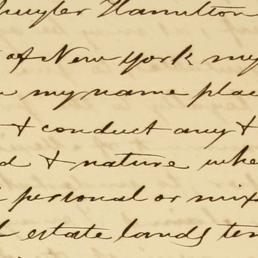 huyler Hamilton
of New York my
my name plac
& conduct any &
d & nature whe
personal or mix
estate lands ten